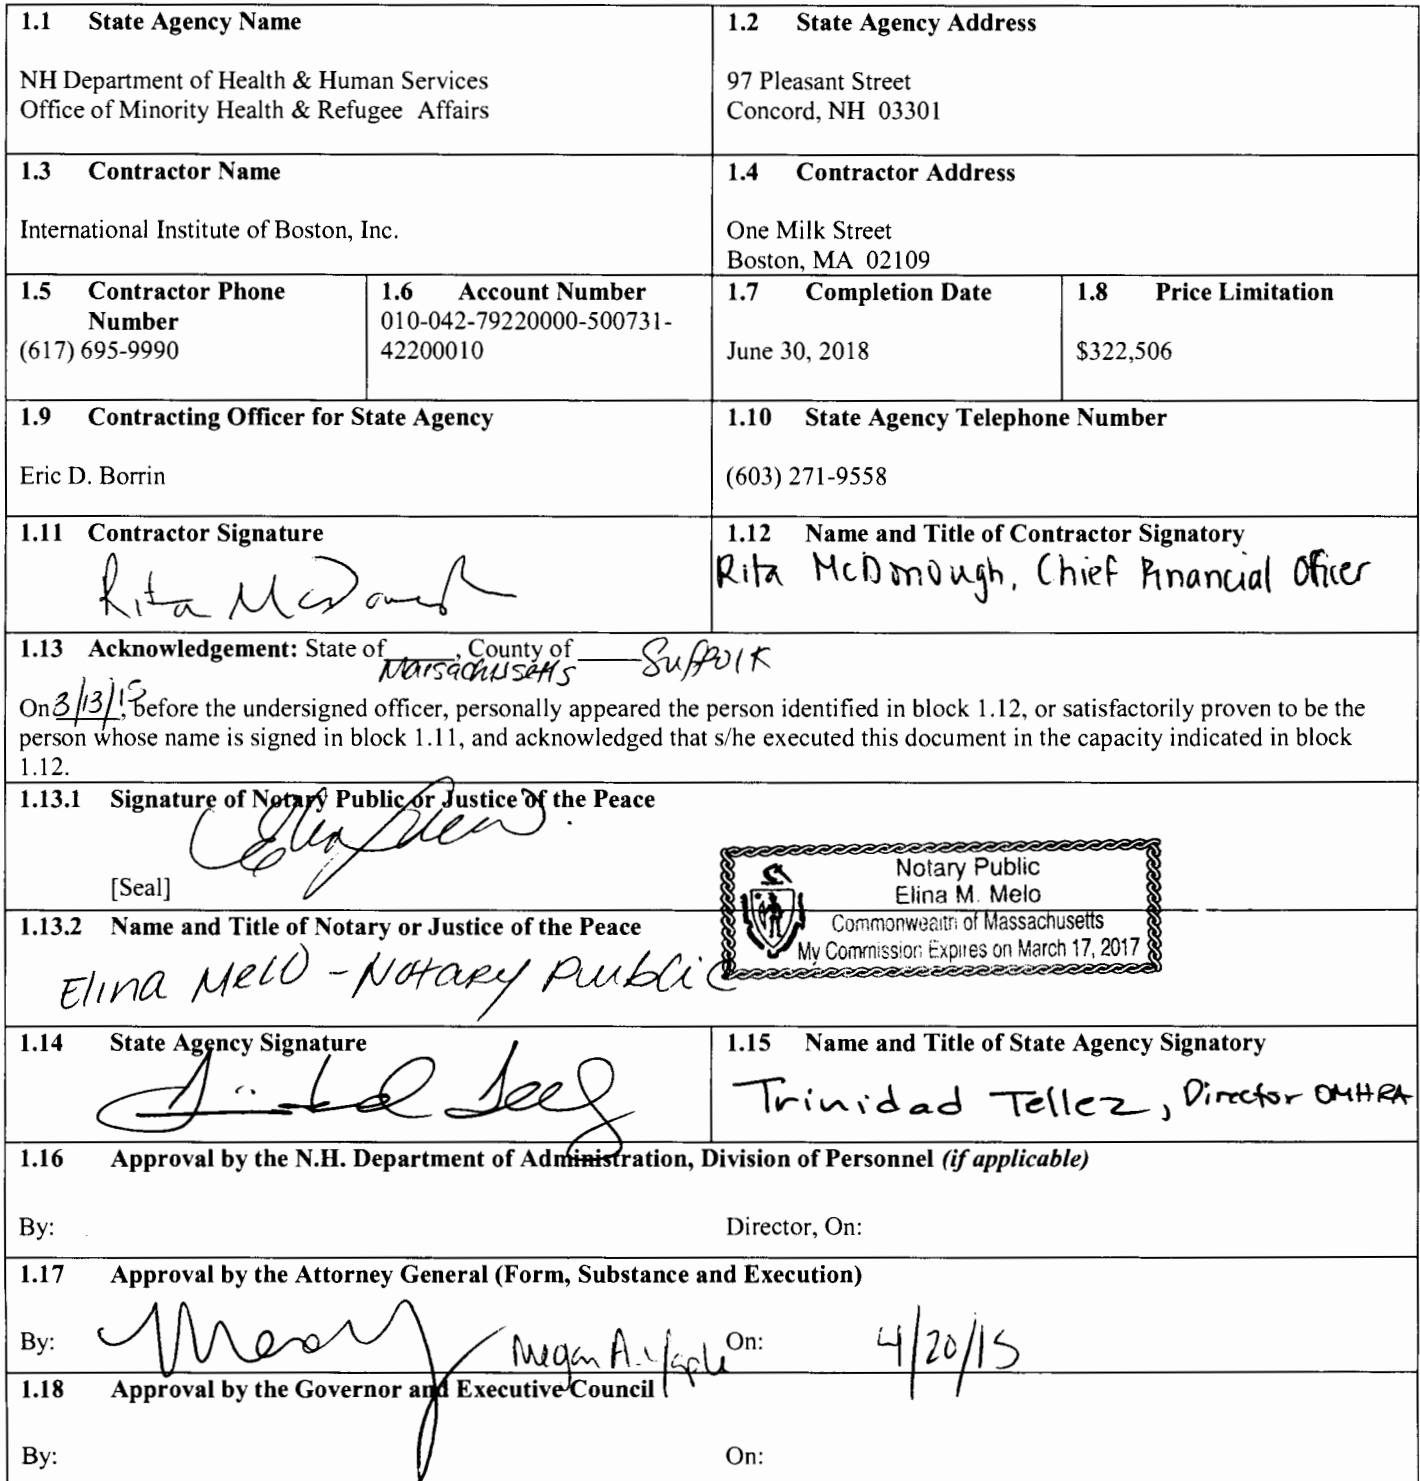 1.1 State Agency Name
NH Department of Health & Human Services
Office of Minority Health & Refugee Affairs
1.2 State Agency Address
97 Pleasant Street
Concord, NH 03301
1.3 Contractor Name
International Institute of Boston, Inc.
1.4 Contractor Address
One Milk Street
Boston, MA 02109
1.5 Contractor Phone
Number
(617) 695-9990
1.6 Account Number
010-042-79220000-500731-
42200010
1.7 Completion Date
June 30, 2018
1.8 Price Limitation
$322,506
1.9 Contracting Officer for State Agency
Eric D. Borrin
1.10 State Agency Telephone Number
(603) 271-9558
1.11 Contractor Signature
Rita McDonough
1.12 Name and Title of Contractor Signatory
Rita McDonough, Chief Financial Officer
1.13 Acknowledgement: State of Massachusetts, County of Suffolk
On 3/13/15, before the undersigned officer, personally appeared the person identified in block 1.12, or satisfactorily proven to be the
person whose name is signed in block 1.11, and acknowledged that s/he executed this document in the capacity indicated in block
1.12.
1.13.1 Signature of Notary Public or Justice of the Peace
[Seal]
Notary Public
Elina M. Melo
Commonwealth of Massachusetts
My Commission Expires on March 17, 2017
1.13.2 Name and Title of Notary or Justice of the Peace
Elina Melo - Notary Public
1.14 State Agency Signature
1.15 Name and Title of State Agency Signatory
Trinidad Tellez, Director OMHRA
1.16 Approval by the N.H. Department of Administration, Division of Personnel (if applicable)
By:
Director, On:
1.17 Approval by the Attorney General (Form, Substance and Execution)
By: Megan A.
On: 4/20/15
1.18 Approval by the Governor and Executive Council
By:
On: